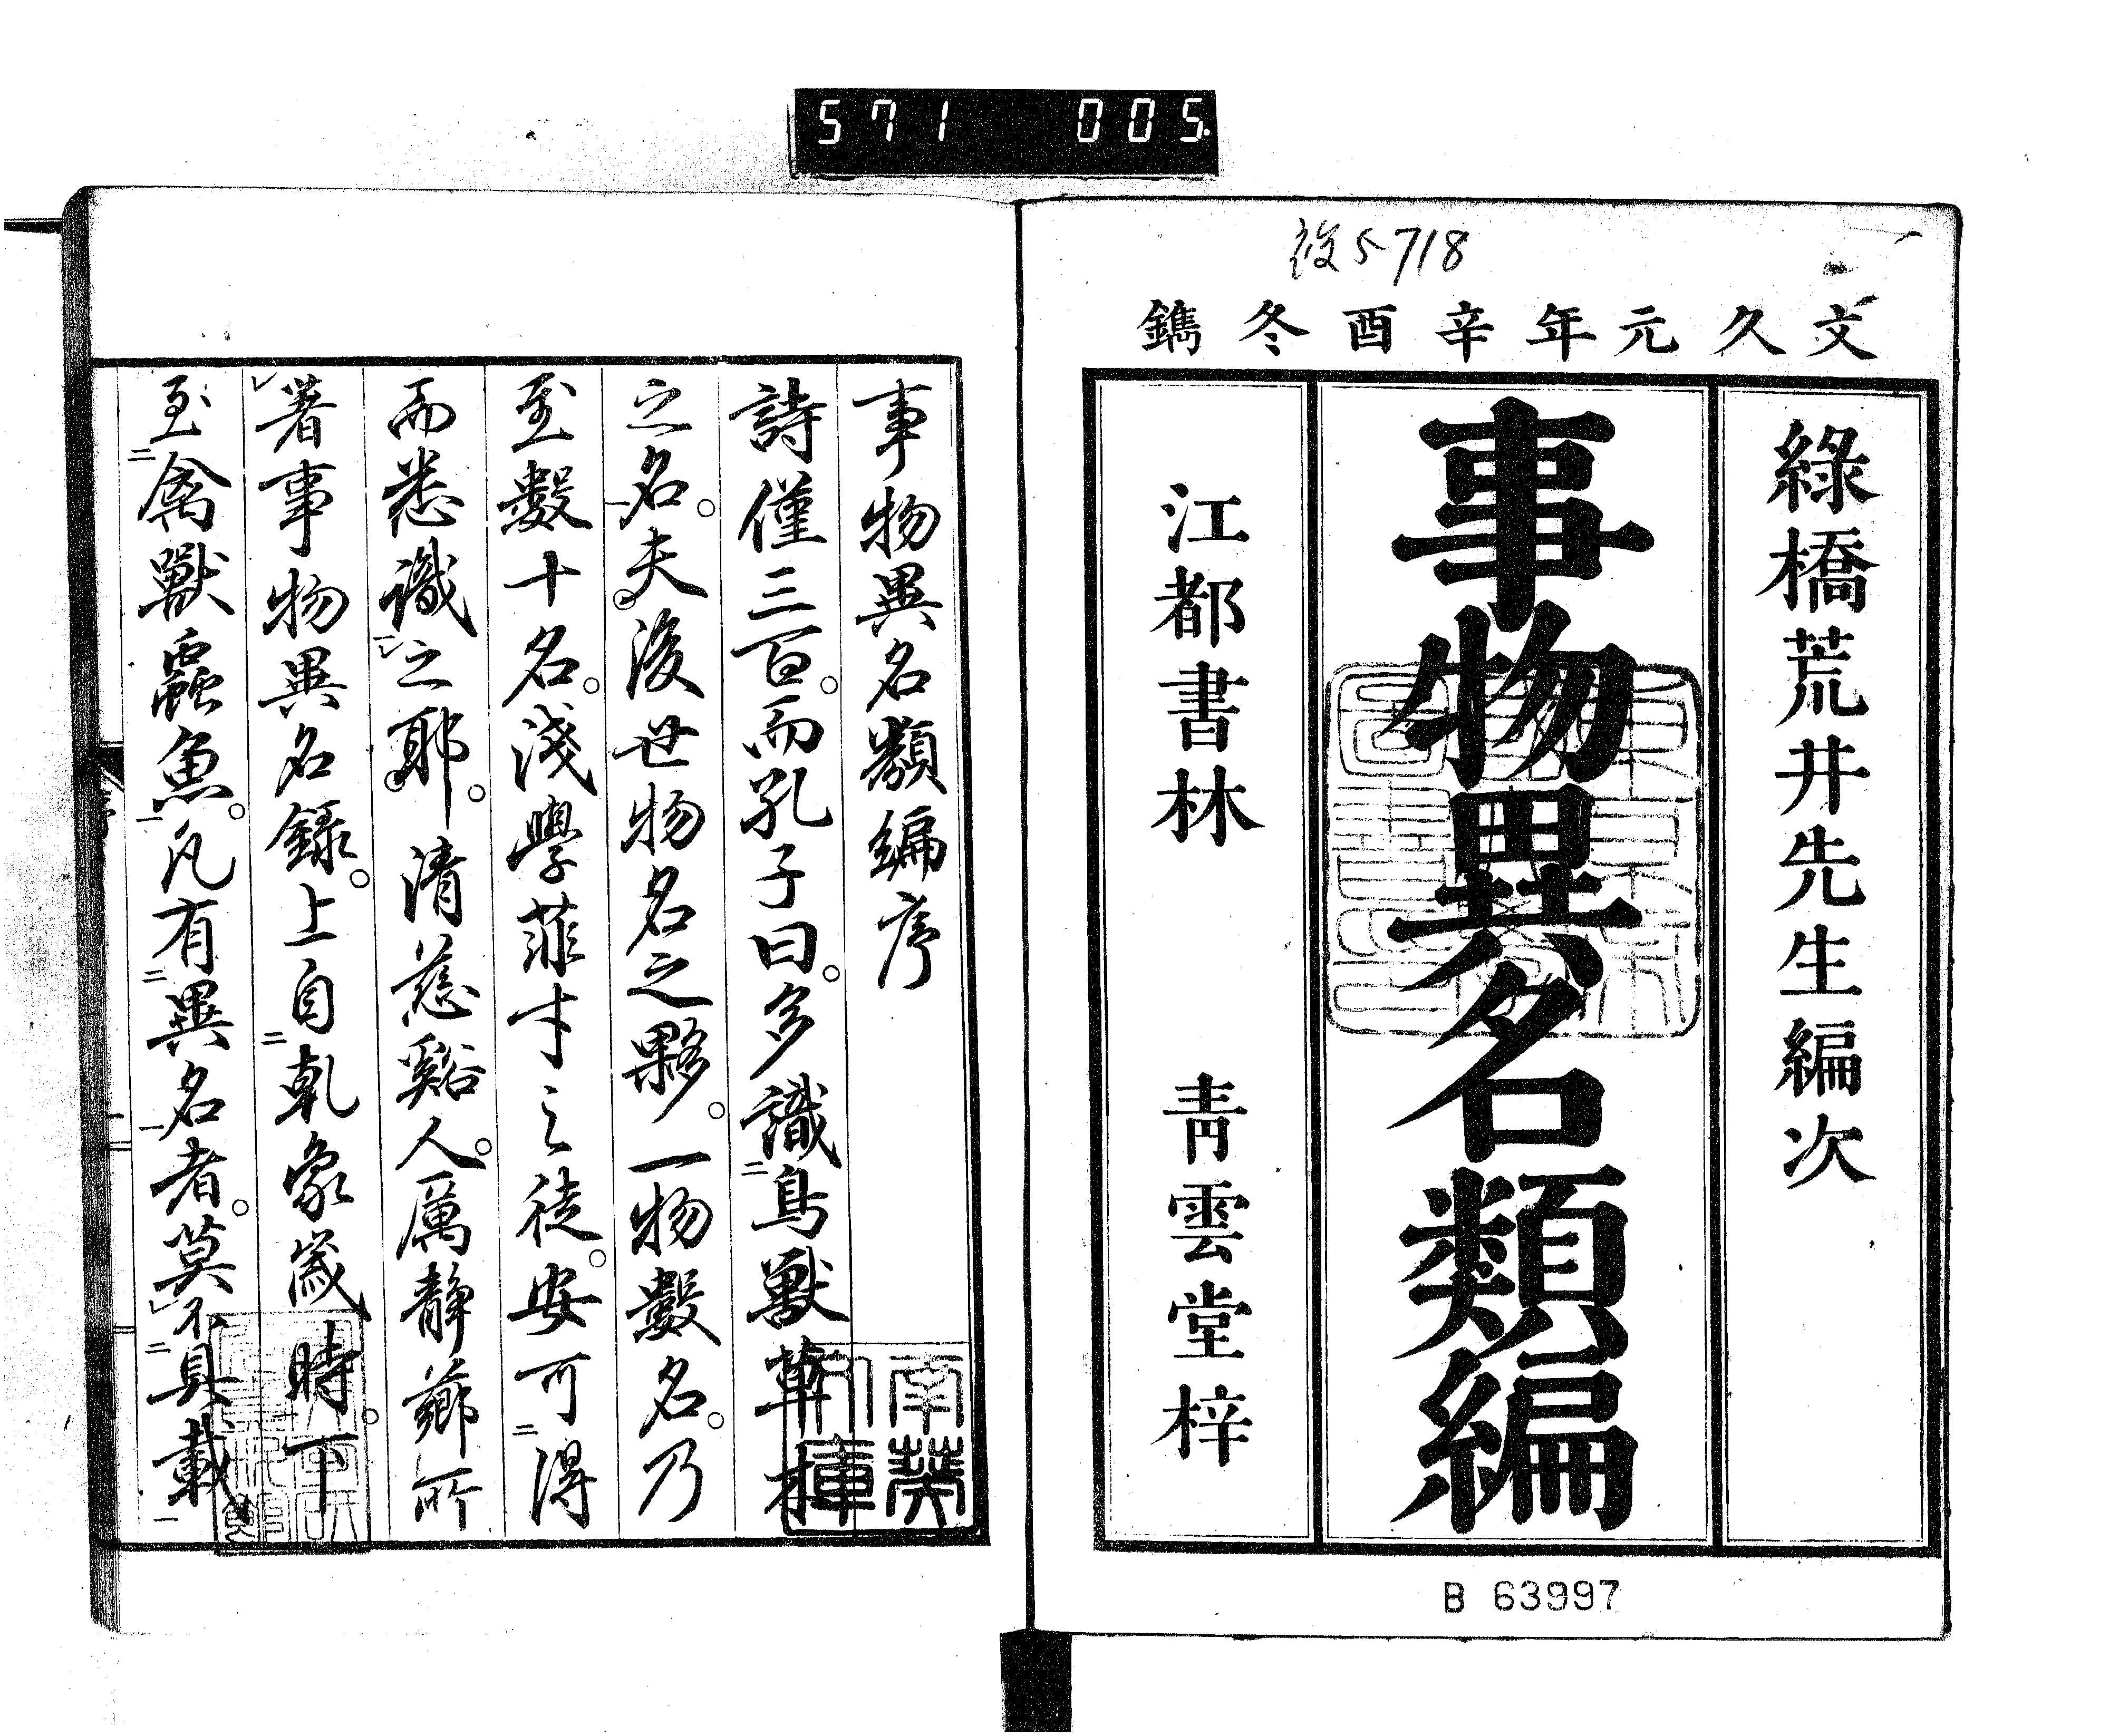 571 005.
5718
文久元年辛酉冬鐫
綠橋荒井先生編次
事物異名類編
江都書林 青雲堂梓
B 63997
事物異名類編序
詩僅三百。而孔子曰。多識二鳥獸草木
之名一。夫後世物名之夥。一物數名。乃
至數十名。淺學菲才之徒。安可二得
而悉識一レ之耶。清慈谿人。厲靜薌所レ
著事物異名錄。上自二乾象歲時一。下
至二禽獸蟲魚一。凡有二異名一者。莫レ不二具載一